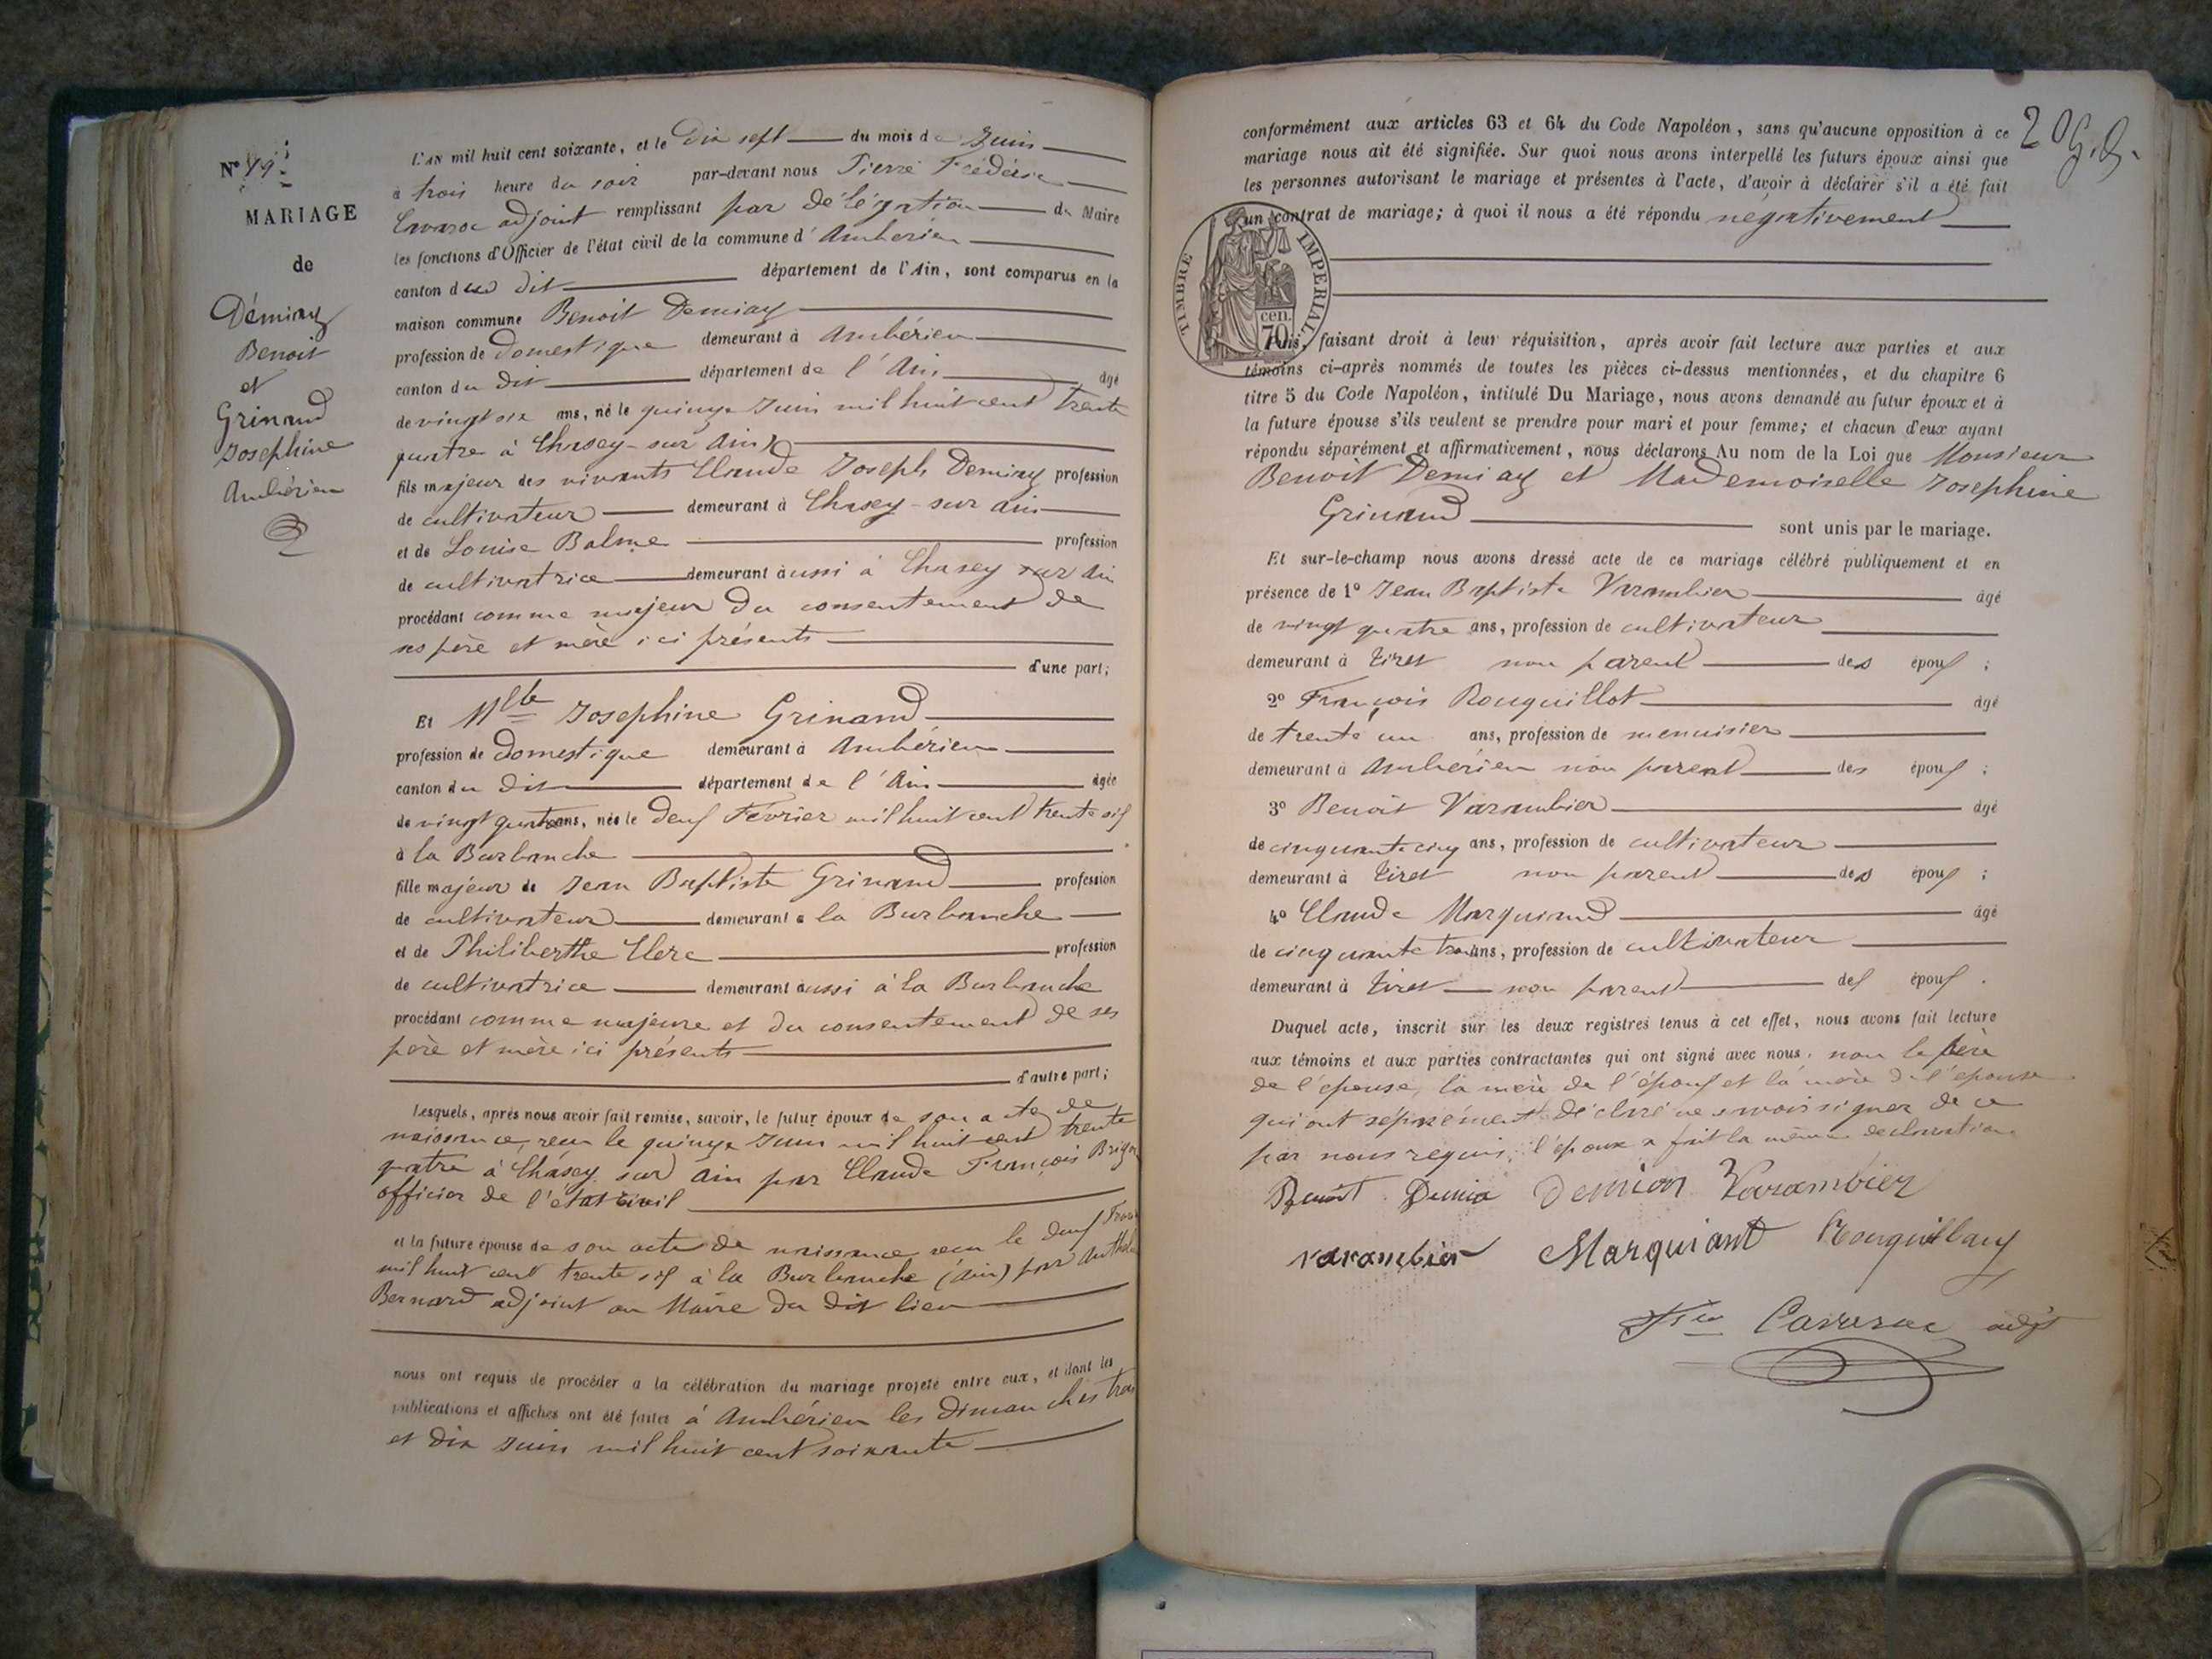 MARIAGE
de
Démiay
Benoit
et
Grinand
Josephine
Ambérieu
L'AN mil huit cent soixante, et le Dix sept du mois de Juin
à trois heure du soir par-devant nous Pierre Fréderic
adjoint remplissant par délégation du Maire
les fonctions d'Officier de l'état civil de la commune d'Ambérieu
canton du dit département de l'Ain, sont comparus en la
maison commune Benoit Demiay
profession de domestique demeurant à Ambérieu
canton du dit département de l'Ain âgé
de vingt six ans, né le quinze Juin mil huit cent trente
quatre à Chasey-sur Ain
fils majeur des vivants Claude Joseph Demiay profession
de cultivateur demeurant à Chasey-sur ain
et de Louise Balme profession
de cultivatrice demeurant aussi à Chasey sur ain
procédant comme majeur du consentement de
ses père et mère ici présents
d'une part;
Et Mlle Josephine Grinand
profession de domestique demeurant à Ambérieu
canton du dit département de l'Ain âgée
de vingt quatre ans, née le deux Février mil huit cent trente six
à la Burbanche
fille majeur de Jean Baptiste Grinand profession
de cultivateur demeurant à la Burbanche
et de Philiberthe Clerc profession
de cultivatrice demeurant aussi à la Burbanche
procédant comme majeure et du consentement de ses
père et mère ici présents
d'autre part;
Lesquels, après nous avoir fait remise, savoir, le futur époux de son acte de
naissance, reçu le quinze Juin mil huit cent trente
quatre à Chasey sur Ain par Claude François
officier de l'état civil
et la future épouse de son acte de naissance reçu le deux
mil huit cent trente six à la Burbanche (Ain) par
Bernard adjoint au Maire du dit lieu
nous ont requis de procéder a la célébration du mariage projeté entre eux, et dont les
publications et affiches ont été faites à Ambérieu les dimanches trois
et dix Juin mil huit cent soixante
conformément aux articles 63 et 64 du Code Napoléon, sans qu'aucune opposition à ce
mariage nous ait été signifiée. Sur quoi nous avons interpellé les futurs époux ainsi que
les personnes autorisant le mariage et présentes à l'acte, d'avoir à déclarer s'il a été fait
un contrat de mariage; à quoi il nous a été répondu négativement
TIMBRE IMPERIAL
70 cen.
faisant droit à leur réquisition, après avoir fait lecture aux parties et aux
témoins ci-après nommés de toutes les pièces ci-dessus mentionnées, et du chapitre 6
titre 5 du Code Napoléon, intitulé Du Mariage, nous avons demandé au futur époux et à
la future épouse s'ils veulent se prendre pour mari et pour femme; et chacun d'eux ayant
répondu séparément et affirmativement, nous déclarons Au nom de la Loi que Monsieur
Benoit Demiay et Mademoiselle Josephine
Grinand sont unis par le mariage.
Et sur-le-champ nous avons dressé acte de ce mariage célébré publiquement et en
présence de 1º Jean Baptiste Varambier âgé
de vingt quatre ans, profession de cultivateur
demeurant à Tiret non parent des époux ;
2º François Rouguillot âgé
de trente un ans, profession de menuisier
demeurant à Ambérieu non parent des époux ;
3º Benoit Varambier âgé
de cinquante cinq ans, profession de cultivateur
demeurant à Tiret non parent des époux ;
4º Claude Marquiand âgé
de cinquante trois ans, profession de cultivateur
demeurant à Tiret non parent des époux .
Duquel acte, inscrit sur les deux registres tenus à cet effet, nous avons fait lecture
aux témoins et aux parties contractantes qui ont signé avec nous, non le père
de l'épouse, la mère de l'époux et la mère de l'épouse
qui ont séparément déclaré ne savoir signer de ce
par nous requis, l'époux a fait la même declaration
Benoit Demia Demion Varambier
varambier Marquiant
adjt